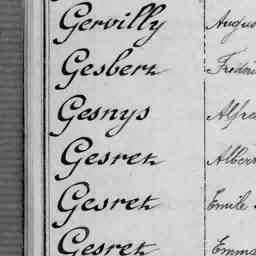 Gervilly Augus
Gesbert Frédéri
Gesnys Alfre
Gesret Alber
Gesret Emile
Gesret Emma